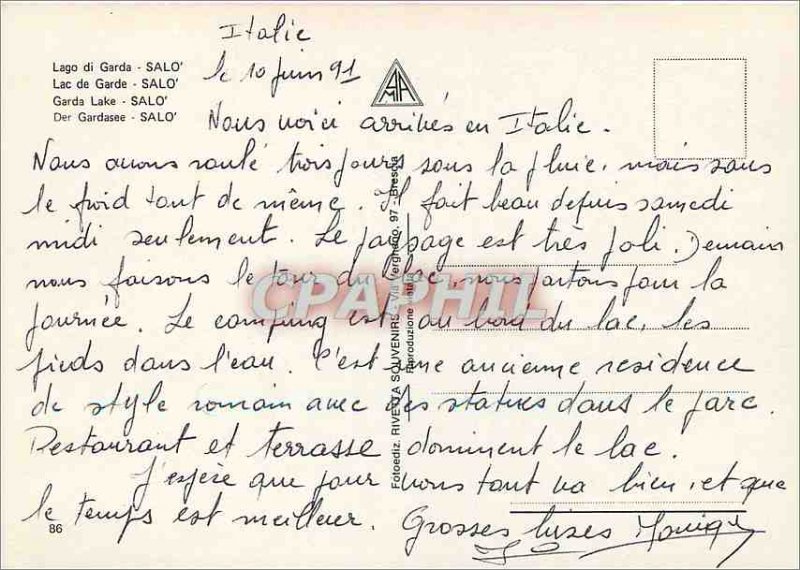 Italie
le 10 juin 91
Lago di Garda - SALO'
Lac de Garde - SALO'
Garda Lake - SALO'
Der Gardasee - SALO'
AMA
Nous voici arrivés en Italie.
Nous avons roulé trois jours sous la pluie, mais sans
le froid tout de même. Il fait beau depuis samedi
midi seulement. Le paysage est très joli. Demain
nous faisons le tour du lac, nous partons pour la
journée. Le camping est au bord du lac, les
pieds dans l'eau. C'est une ancienne residence
de style romain avec des statues dans le parc.
Restaurant et terrasse dominent le lac.
J'espère que pour vous tout va bien, et que
le temps est meilleur. Grosses bises Monique
86
Fotoediz. RIVISTA SOUVENIRS - Via Verghano, 97 - Brescia
Riproduzione vietata
CPAPHIL